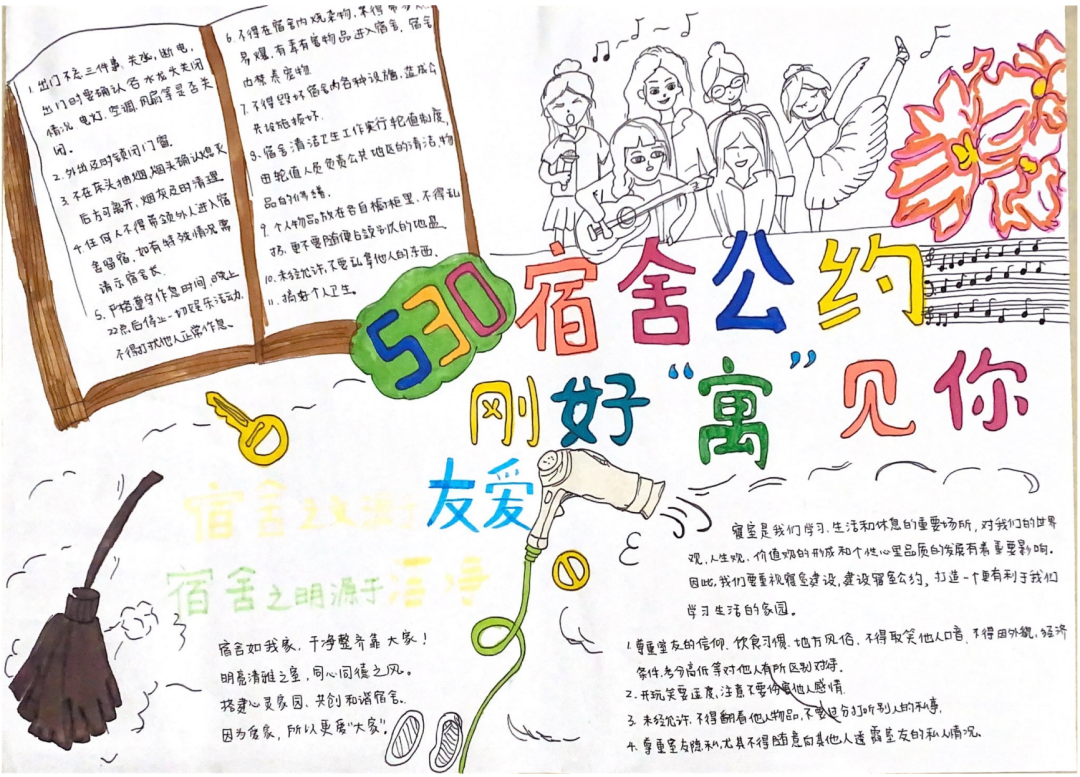 1. 出门不忘三件事:关水,断电,
出门时要确认否水龙头关闭
情况.电灯.空调.风扇等是否关
闭。
2. 外出及时锁闭门窗。
3. 不在床头抽烟,烟头确认熄灭
后方可离开,烟灰及时清理
4. 任何人不得带领外人进入宿
舍留宿,如有特殊情况需
请示宿舍长
5. 严格遵守作息时间,晚上
22点后停止一切娱乐活动.
不得打扰他人正常作息、
6. 不得在宿舍内烧杂物,不得带易
易爆,有毒有害物品进入宿舍.宿舍
内禁养宠物
7. 不得毁坏宿舍内各种设施,造成公
共设施损坏.
8. 宿舍清洁卫生工作实行轮值制度,
由轮值人员负责公共地区的清洁,物
品的修缮.
9. 个人物品放在各自橱柜里.不得乱
扔.更不要随便占领别人的地盘
10. 未经允许,不要乱拿他人的东西.
11. 搞好个人卫生。
530宿舍公约
刚好“寓”见你
友爱
宿舍之友源于
宿舍之明源于洁净
宿舍如我家,干净整齐靠大家!
明亮清雅之室,同心同德之风。
搭建心灵家园.共创和谐宿舍.
因为爱家,所以更爱“大家”.
寝室是我们学习.生活和休息的重要场所,对我们的世界
观,人生观、价值观的形成和个性心里品质的发展有着重要影响。
因此,我们要重视寝室建设,建设寝室公约。打造一个更有利于我们
学习生活的家园。
1. 尊重室友的信仰.饮食习惯.地方风俗、不得取笑他人口音.不得因外貌,经济
条件,考分高低等对他人有所区别对待.
2. 开玩笑要适度,注意不要伤害他人感情.
3. 未经允许.不得翻看他人物品,不要过分打听别人的私事,
4. 尊重室友隐私,尤其不得随意向其他人透露室友的私人情况.